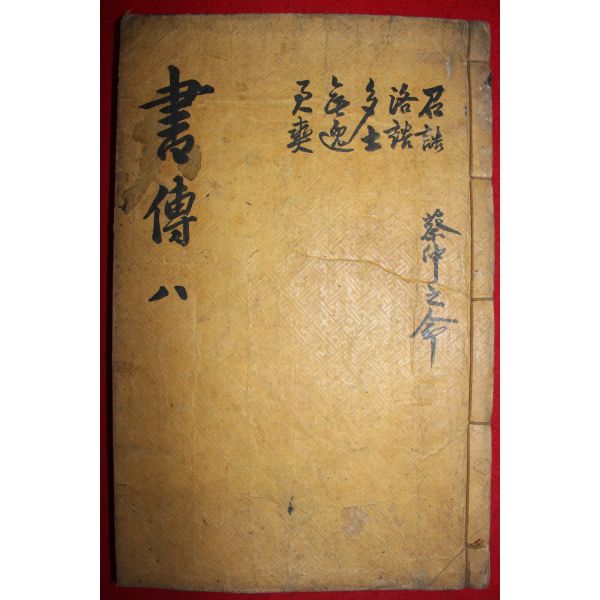 書傳 八
召誥
洛誥
多士
無逸
君奭
蔡仲之命